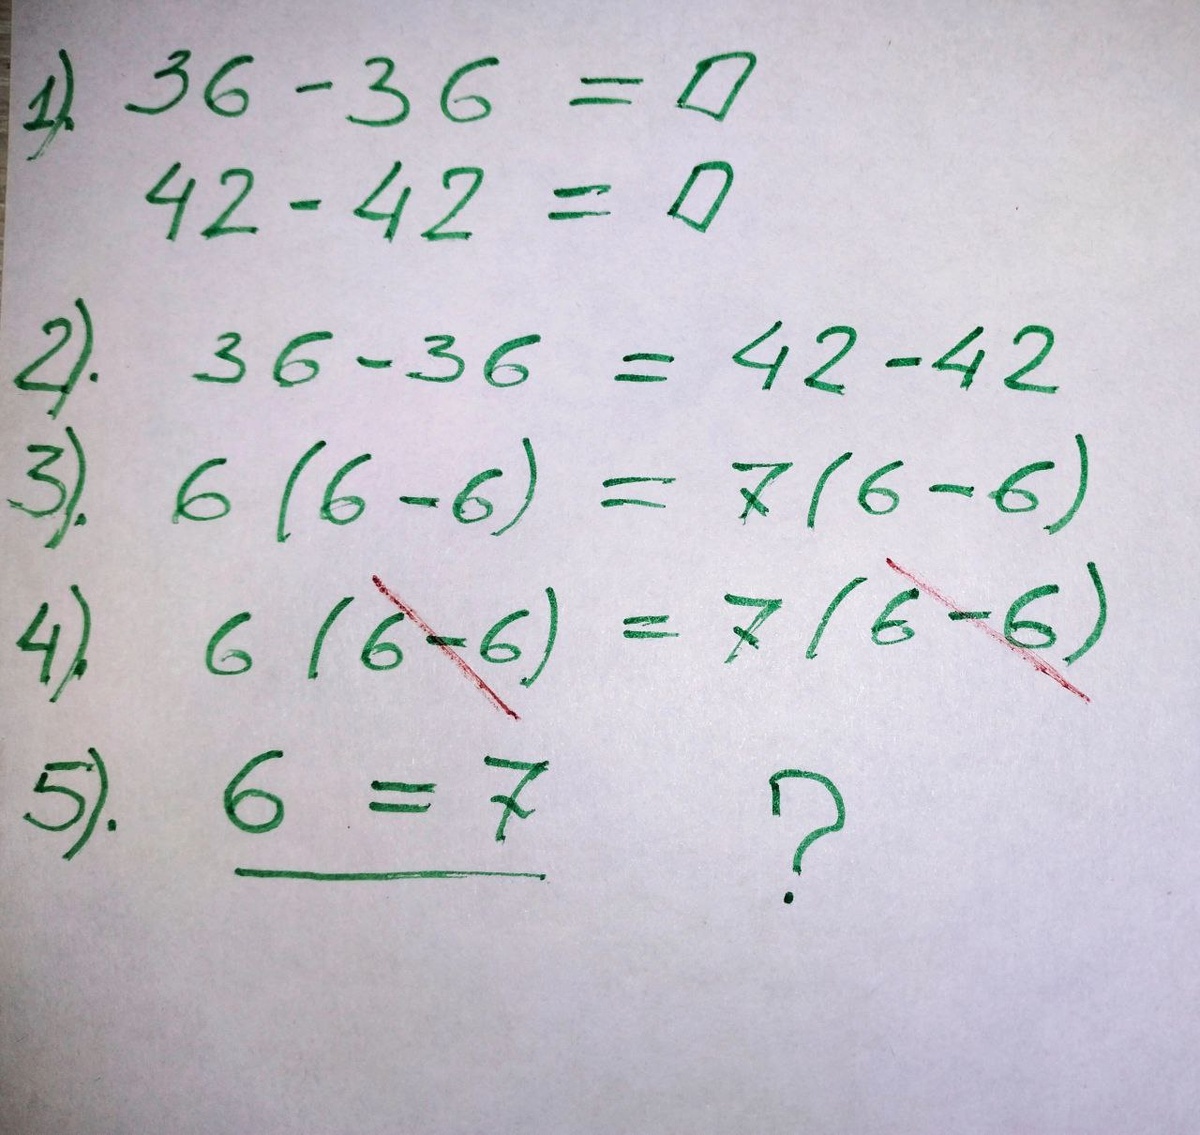 1). 36 - 36 = 0
42 - 42 = 0
2). 36 - 36 = 42 - 42
3). 6 (6 - 6) = 7 (6 - 6)
4). 6 (6 - 6) = 7 (6 - 6)
5). 6 = 7 ?